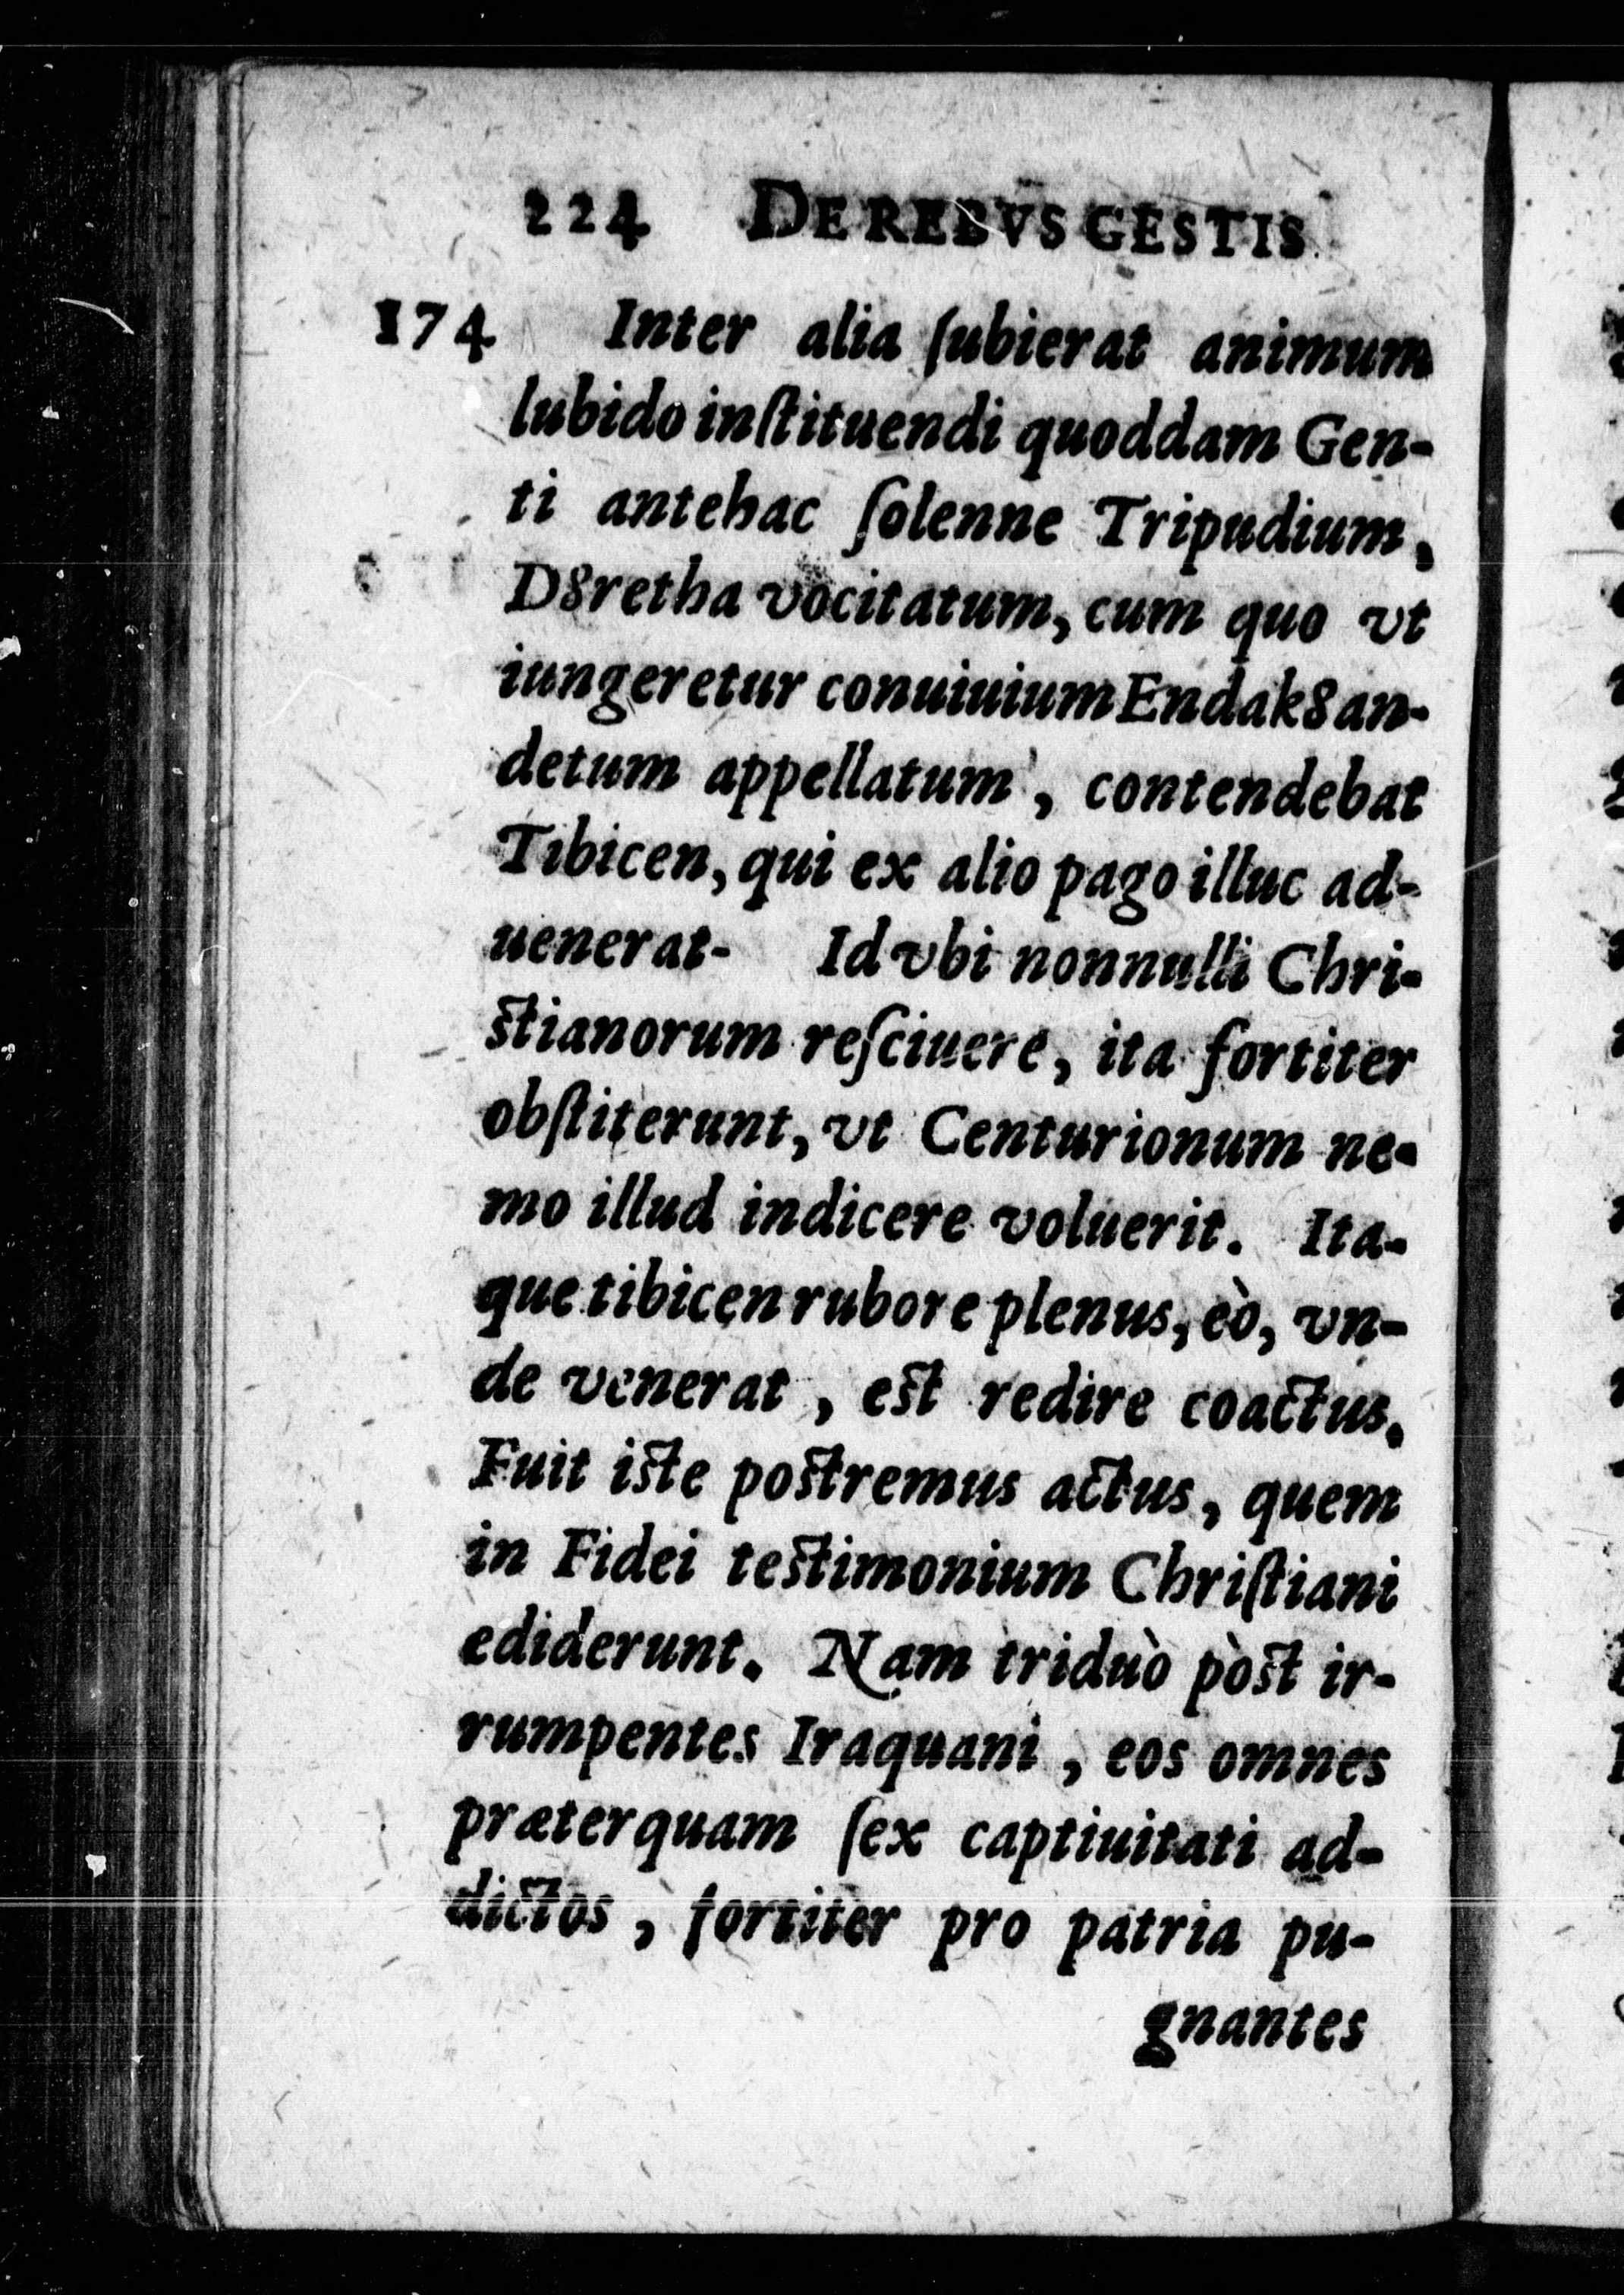 224 DE REBVS GESTIS
174 Inter alia ſubierat animum
lubido inſtituendi quoddam Gen-
ti antehac ſolenne Tripudium,
D8retha vocitatum, cum quo vt
iungeretur conuiuium Endak8an-
detum appellatum, contendebat
Tibicen, qui ex alio pago illuc ad-
uenerat- Id vbi nonnulli Chri-
ſtianorum reſciuere, ita fortiter
obſtiterunt, vt Centurionum ne-
mo illud indicere voluerit. Ita-
que tibicen rubore plenus, eò, vn-
de venerat, eſt redire coactus.
Fuit iſte poſtremus actus, quem
in Fidei teſtimonium Chriſtiani
ediderunt. Nam triduò pòſt ir-
rumpentes Iraquani, eos omnes
præterquam ſex captiuitati ad-
dictos, fortiter pro patria pu-
gnantes